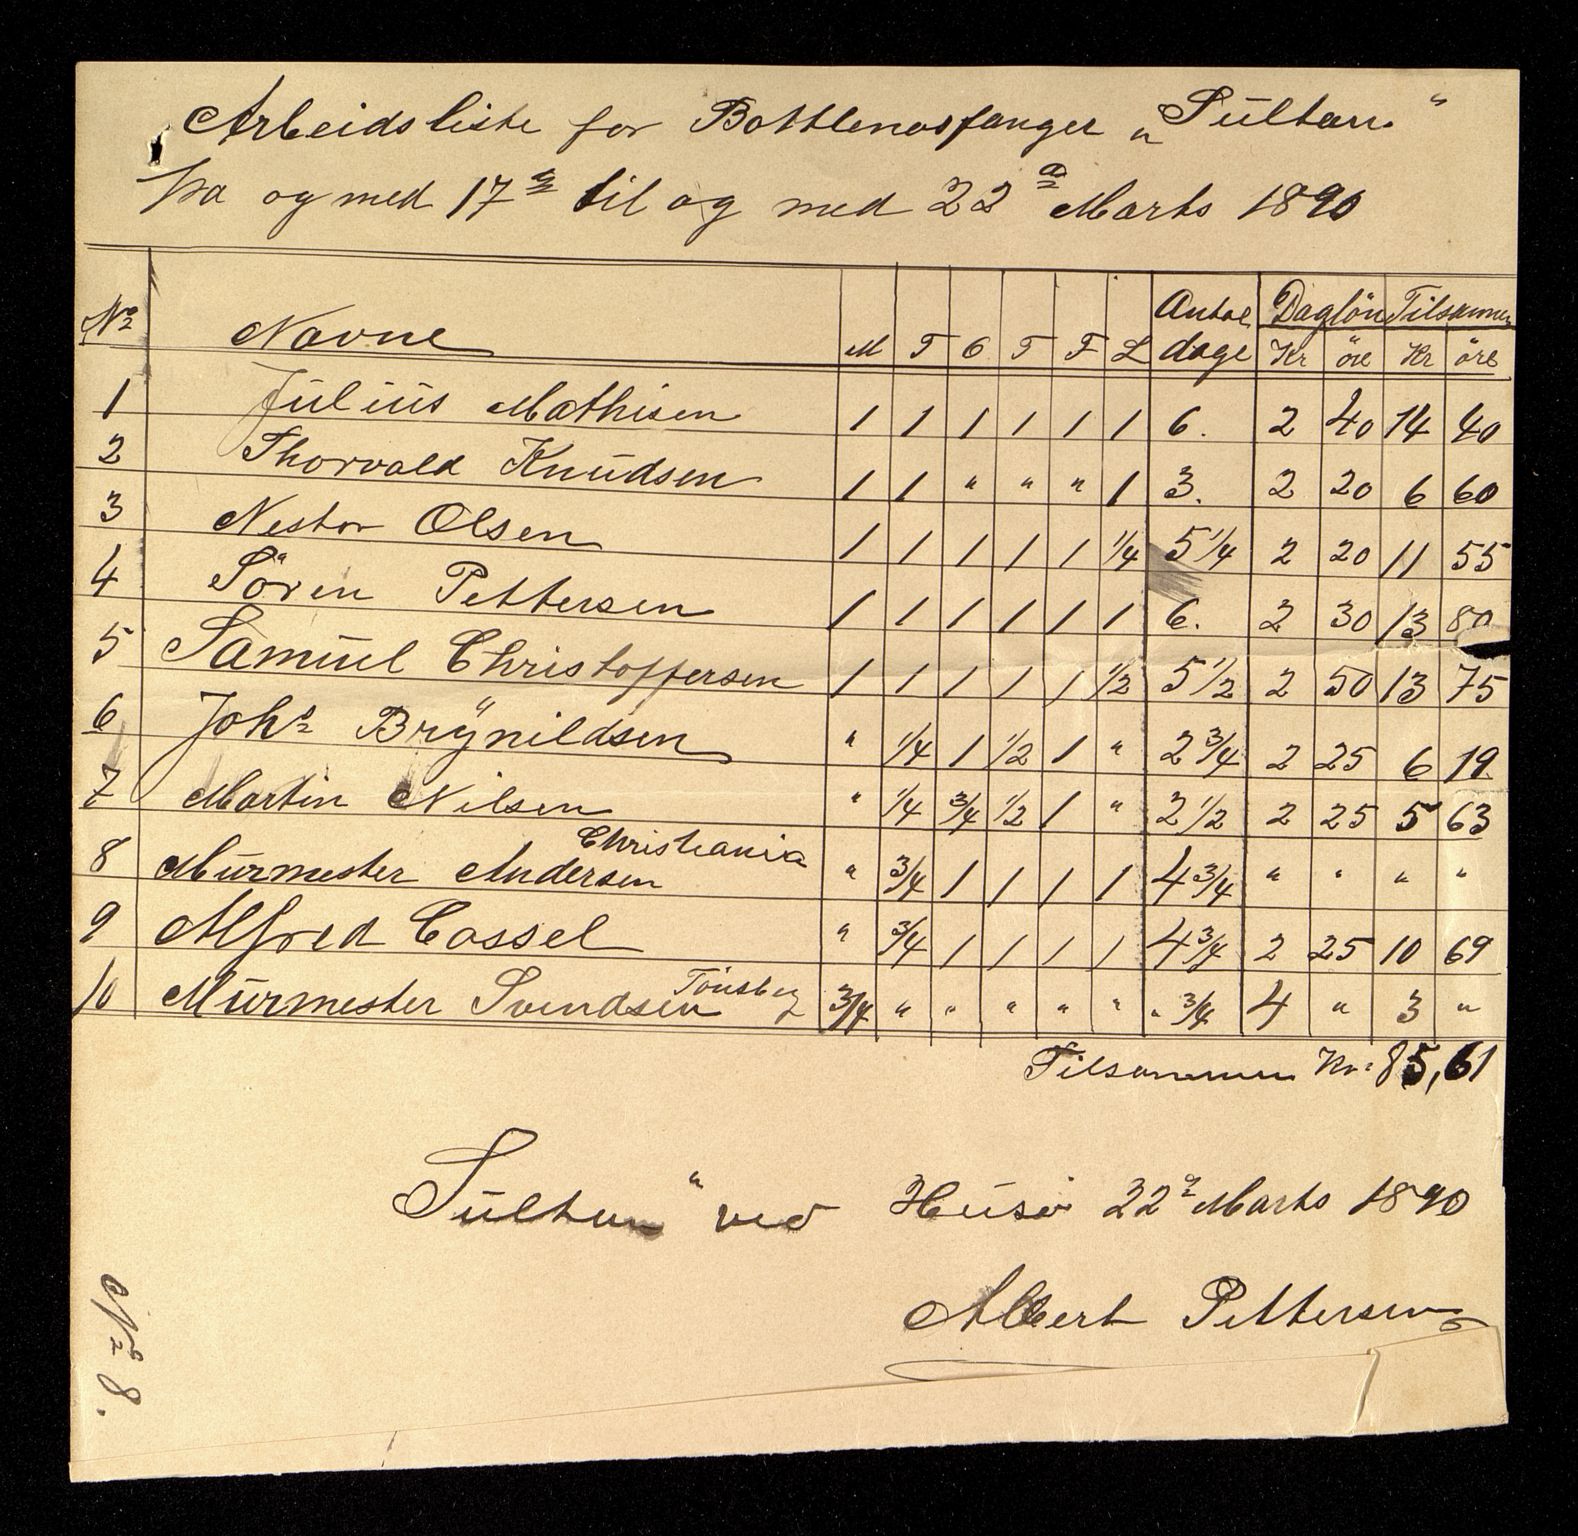 Arbeidsliste for Bottlenosfanger „Sultan"
fra og med 17de til og med 22de Marts 1890
No Navne M T O T F L Antal dage Daglön Kr öre Tilsammen Kr öre
1 Julius Mathisen 1 1 1 1 1 1 6. 2 40 14 40
2 Thorvald Knudsen 1 1 " " " 1 3. 2 20 6 60
3 Nestor Olsen 1 1 1 1 1 1/4 5 1/4 2 20 11 55
4 Sören Pettersen 1 1 1 1 1 1 6. 2 30 13 80
5 Samuel Christoffersen 1 1 1 1 1 1/2 5 1/2 2 50 13 75
6 Johs Brynildsen " 1/4 1 1/2 1 " 2 3/4 2 25 6 19.
7 Martin Nilsen " 1/4 3/4 1/2 1 " 2 1/2 2 25 5 63
8 Murmester Andersen Christiania " 3/4 1 1 1 1 4 3/4 " " " "
9 Alfred Cassel " 3/4 1 1 1 1 4 3/4 2 25 10 69
10 Murmester Svendsen Tönsberg 3/4 " " " " " " 3/4 4 " 3 "
Tilsammen Kr: 85,61
Sultan" ved Husö 22de Marts 1890
Albert Pettersen
No 8.